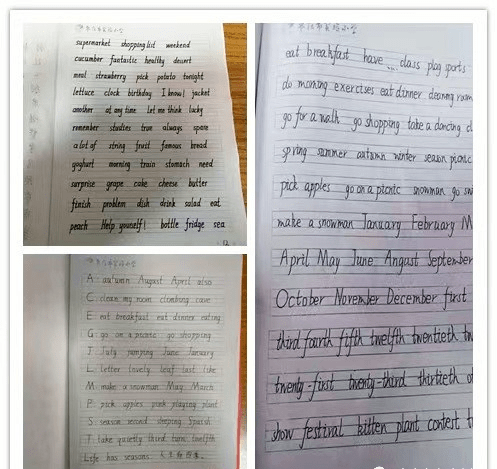 supermarket shopping list weekend
cucumber fantastic healthy desert
meal strawberry pick potato tonight
lettuce clock birthday I know! jacket
another at any time Let me think lucky
remember studies true always spare
a lot of string fruit famous bread
yoghurt morning train stomach need
surprise grape cake cheese butter
finish problem dish drink salad eat
peach Help youself! bottle fridge sea
12
A: autumn August April also
C: clean my room climbing cave
E: eat breakfast eat dinner eating
G: go on a picnic go shopping
J: July jumping June January
L: letter lovely leaf last like
M: make a snowman May March
P: pick apples pink playing plant
S: season second sleeping Spanish
T: take quietly third turn twelfth
Life has seasons.
eat breakfast have class play sports
do morning exercises eat dinner
go for a walk go shopping take a dancing
spring summer autumn winter season picnic
pick apples go on a picnic snowman go
make a snowman January February
April May June Augast September
October November December first
third fourth fifth twelfth twentieth
twenty-first twenty-third thirtieth
show festival kitten plant contest